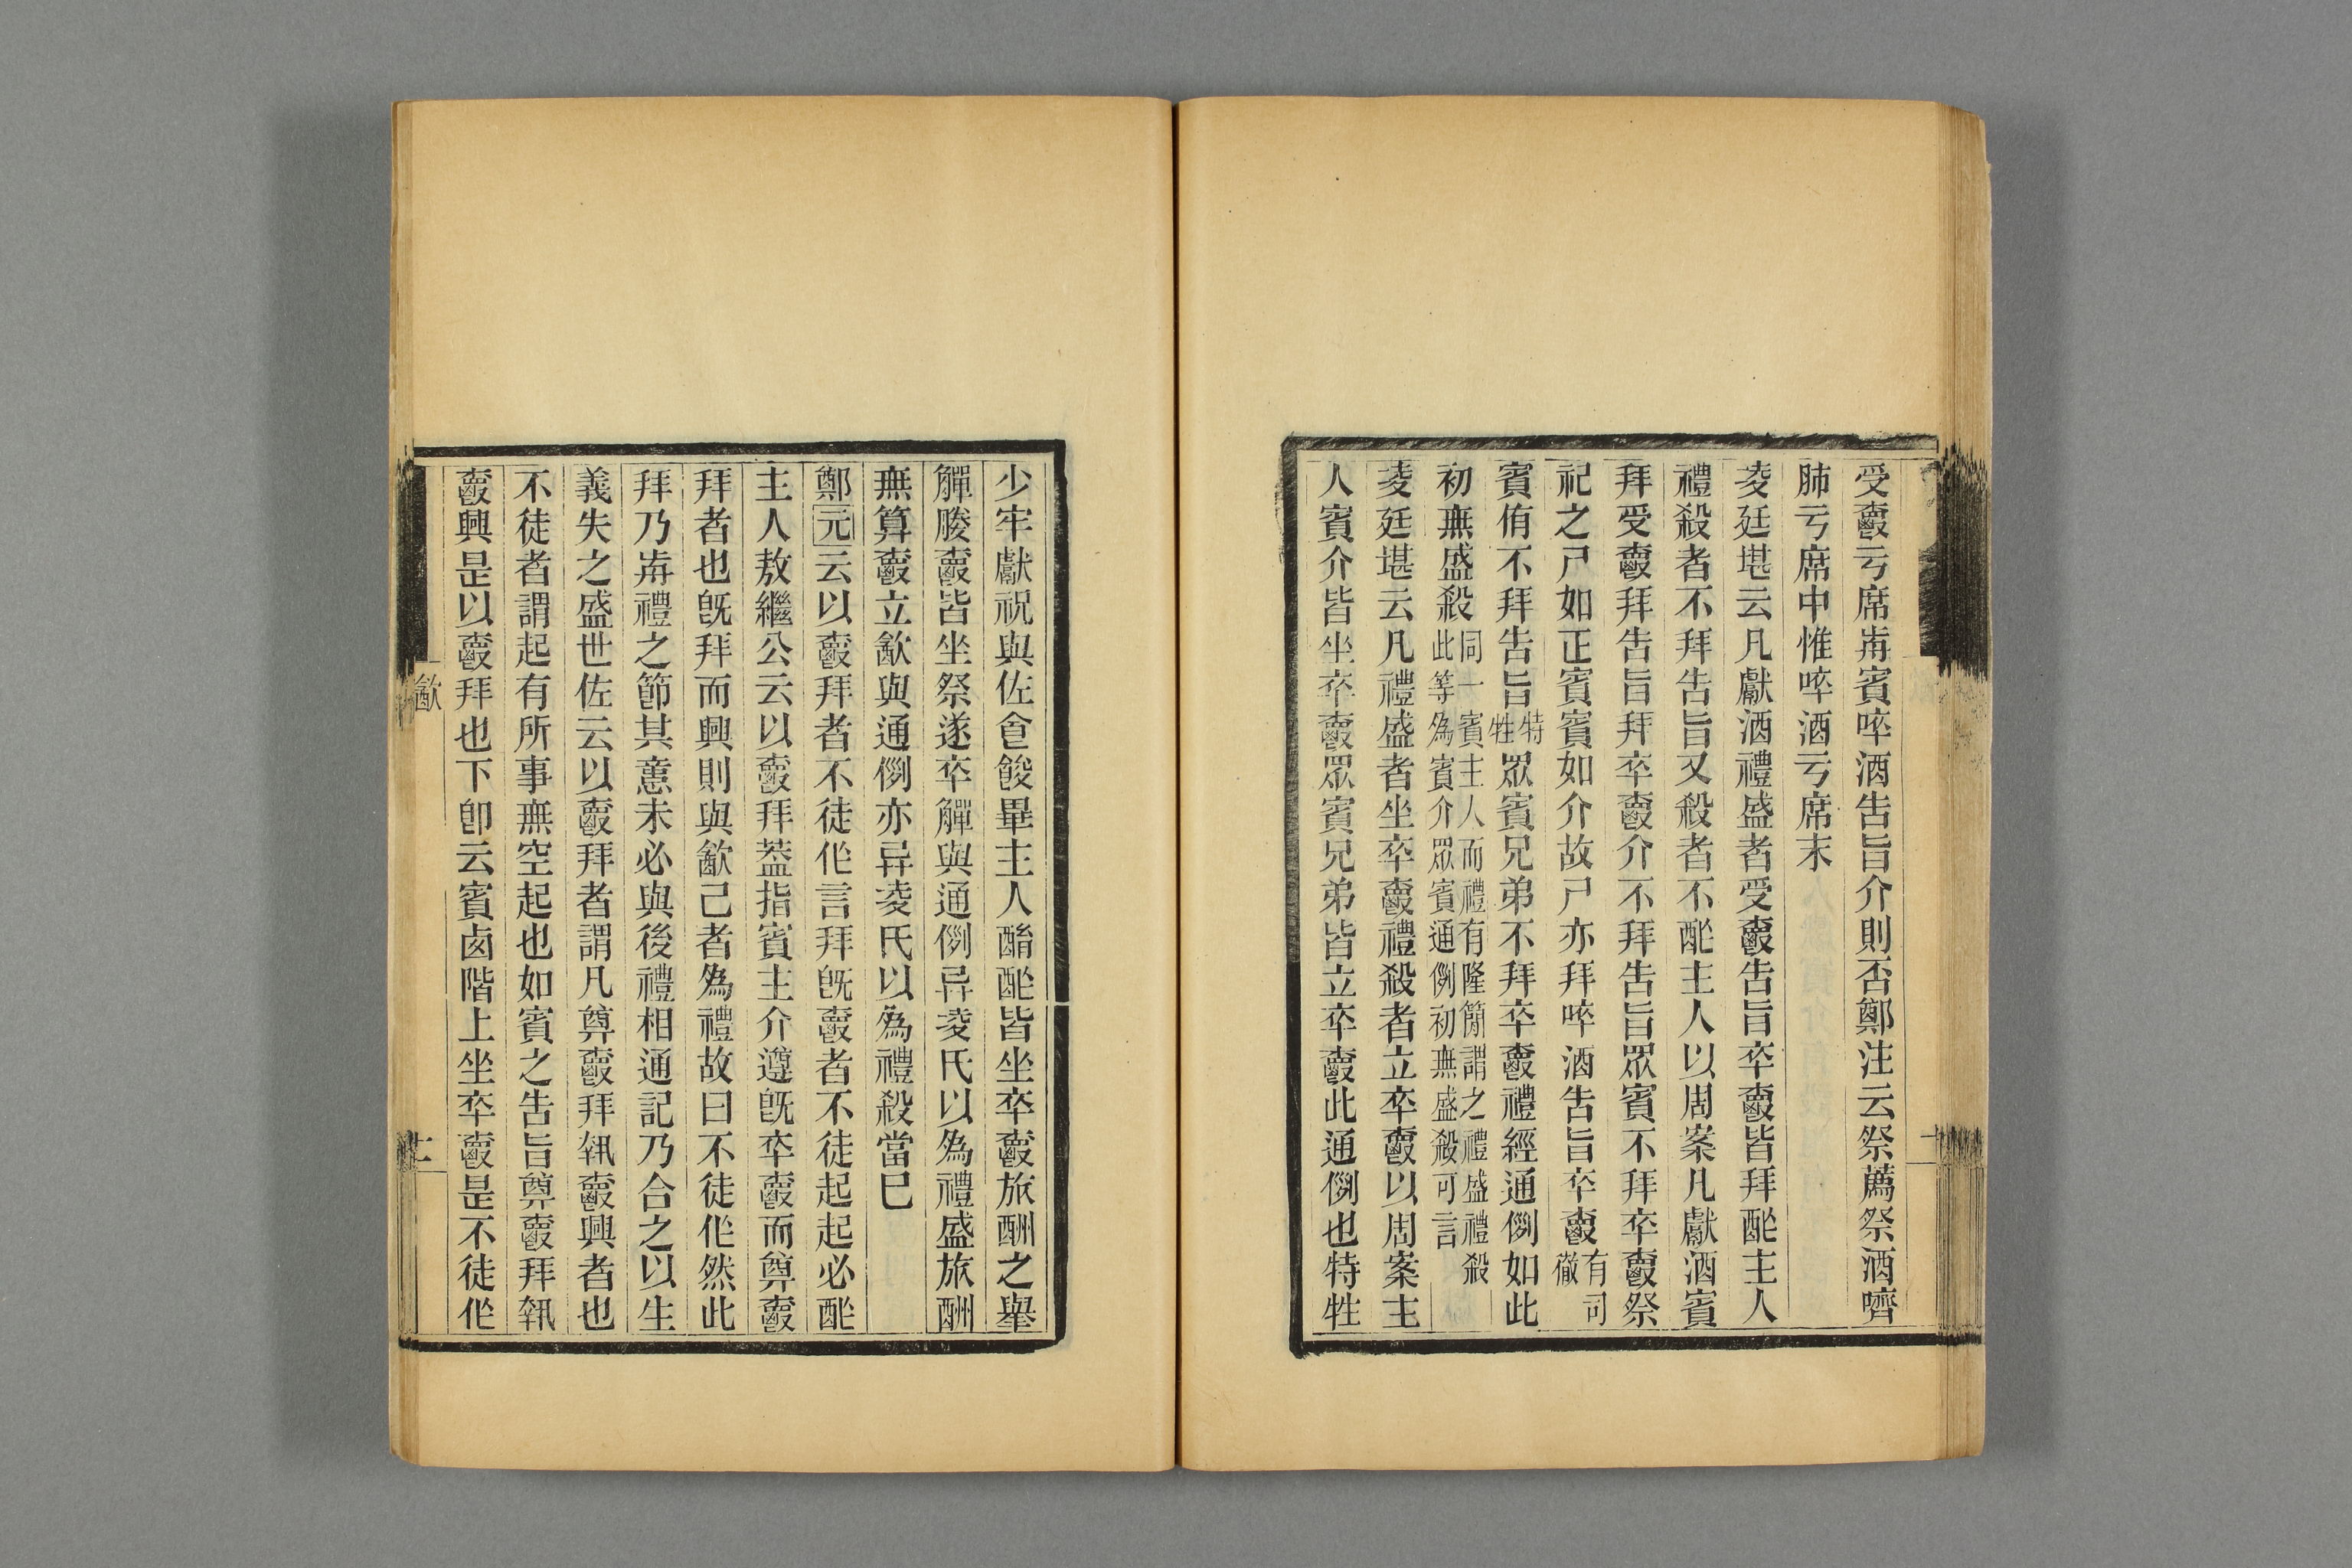 受爵亏席歬賓啐酒告旨介則否鄭注云祭薦祭酒嚌
肺亏席中惟啐酒亏席末
淩廷堪云凡獻酒禮盛者受爵告旨卒爵皆拜酢主人
禮殺者不拜告旨又殺者不酢主人以周案凡獻酒賓
拜受爵拜告旨拜卒爵介不拜告旨眾賓不拜卒爵祭
祀之尸如正賓賓如介故尸亦拜啐酒告旨卒爵有司
徹
賓侑不拜告旨特
牲眾賓兄弟不拜卒爵禮經通例如此
初無盛殺同一賓主人而禮有隆簡謂之禮盛禮殺
此等為賓介眾賓通例初無盛殺可言
淩廷堪云凡禮盛者坐卒爵禮殺者立卒爵以周案主
人賓介皆坐卒爵眾賓兄弟皆立卒爵此通例也特牲
少牢獻祝與佐食餕畢主人酳酢皆坐卒爵旅酬之舉
觶媵爵皆坐祭遂卒觶與通例异淩氏以為禮盛旅酬
無算爵立飲與通例亦异淩氏以為禮殺當已
鄭元云以爵拜者不徒作言拜旣爵者不徒起起必酢
主人敖繼公云以爵拜葢指賓主介遵旣卒爵而奠爵
拜者也旣拜而興則與飲己者為禮故曰不徒作然此
拜乃歬禮之節其意未必與後禮相通記乃合之以生
義失之盛世佐云以爵拜者謂凡奠爵拜執爵興者也
不徒者謂起有所事無空起也如賓之告旨奠爵拜執
爵興是以爵拜也下卽云賓卤階上坐卒爵是不徒作